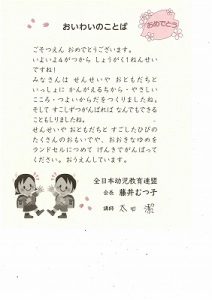 おいわいのことば
おめでとう
ごそつえん おめでとうございます。
いよいよ4がつから しょうがく1ねんせい
ですね！
みなさんは せんせいや おともだちと
いっしょに かんがえるちから・やさしい
こころ・つよいからだをつくりましたね。
そして すこしずつがんばれば なんでもできる
こともしりましたね。
せんせいや おともだちと すごしたひびの
たくさんのおもいでや、おおきなゆめを
ランドセルにつめて げんきでがんばって
ください。おうえんしています。
全日本幼児教育連盟
会長 藤井むつ子
講師